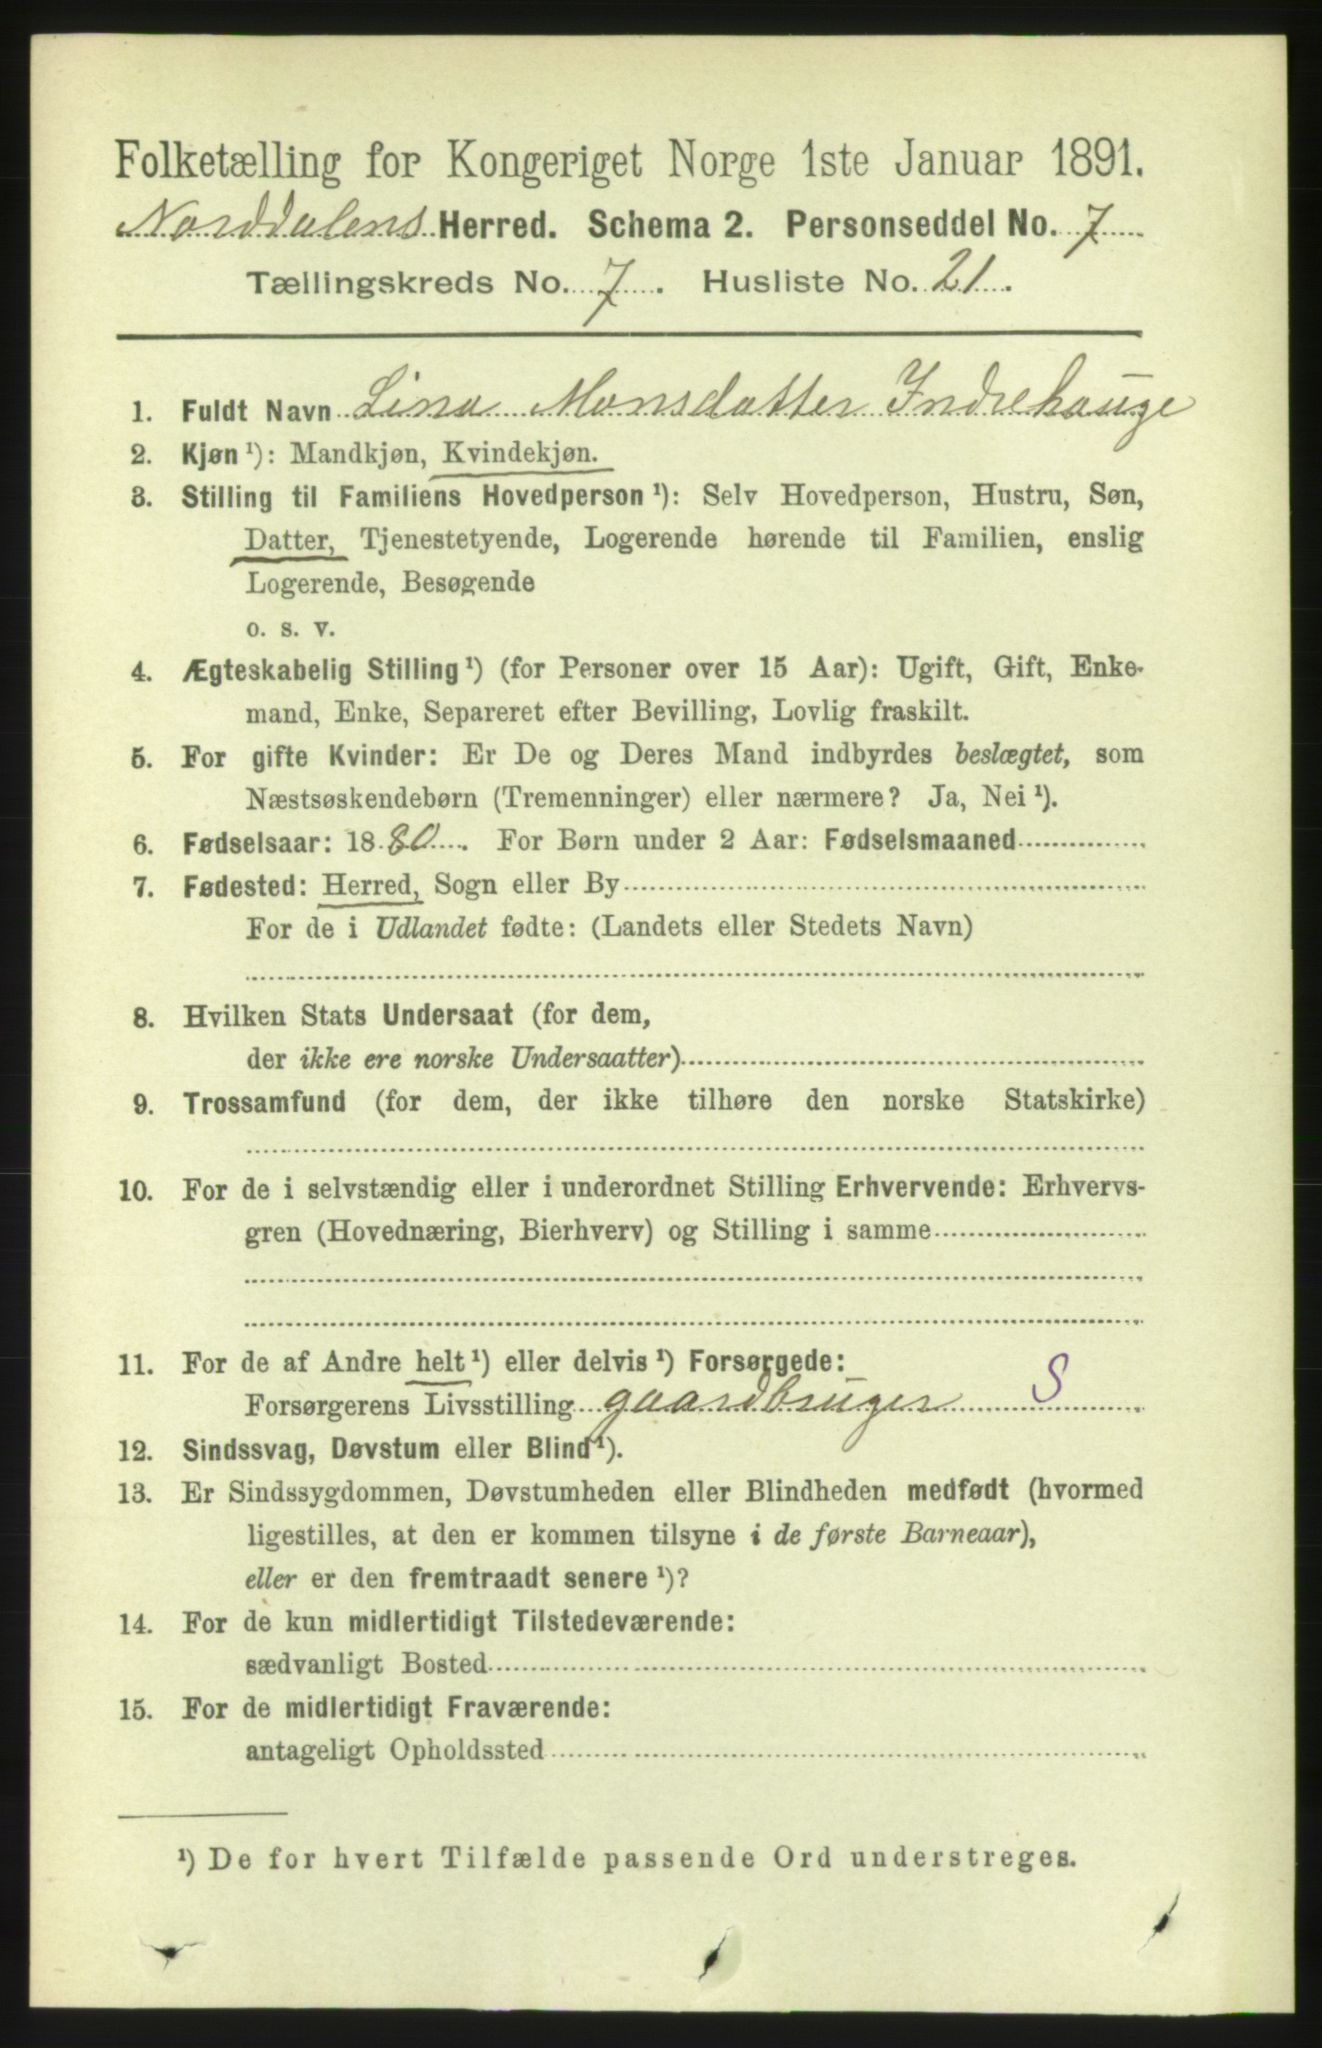 Folketælling for Kongeriget Norge 1ste Januar 1891.
Norddalens Herred. Schema 2. Personseddel No. 7
Tællingskreds No. 7. Husliste No. 21.
1. Fuldt Navn Lina Monsdatter Indrehauge
2. Kjøn ¹): Mandkjøn, Kvindekjøn.
3. Stilling til Familiens Hovedperson ¹): Selv Hovedperson, Hustru, Søn,
Datter, Tjenestetyende, Logerende hørende til Familien, enslig
Logerende, Besøgende
o. s. v.
4. Ægteskabelig Stilling ¹) (for Personer over 15 Aar): Ugift, Gift, Enke-
mand, Enke, Separeret efter Bevilling, Lovlig fraskilt.
5. For gifte Kvinder: Er De og Deres Mand indbyrdes beslægtet, som
Næstsøskendebørn (Tremenninger) eller nærmere? Ja, Nei ¹).
6. Fødselsaar: 1880. For Børn under 2 Aar: Fødselsmaaned
7. Fødested: Herred, Sogn eller By
For de i Udlandet fødte: (Landets eller Stedets Navn)
8. Hvilken Stats Undersaat (for dem,
der ikke ere norske Undersaatter)
9. Trossamfund (for dem, der ikke tilhøre den norske Statskirke)
10. For de i selvstændig eller i underordnet Stilling Erhvervende: Erhvervs-
gren (Hovednæring, Bierhverv) og Stilling i samme
11. For de af Andre helt ¹) eller delvis ¹) Forsørgede:
Forsørgerens Livsstilling gaardbruger S
12. Sindssvag, Døvstum eller Blind ¹).
13. Er Sindssygdommen, Døvstumheden eller Blindheden medfødt (hvormed
ligestilles, at den er kommen tilsyne i de første Barneaar),
eller er den fremtraadt senere ¹)?
14. For de kun midlertidigt Tilstedeværende:
sædvanligt Bosted
15. For de midlertidigt Fraværende:
antageligt Opholdssted
¹) De for hvert Tilfælde passende Ord understreges.